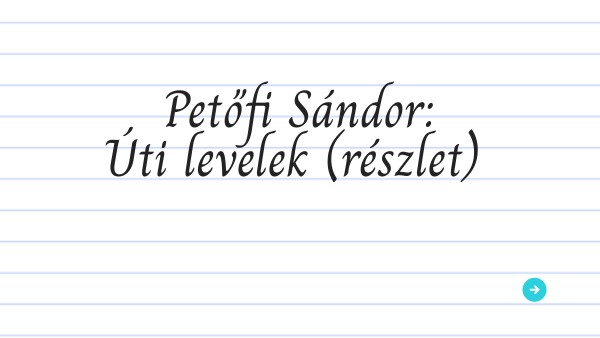 Petőfi Sándor:
Úti levelek (részlet)